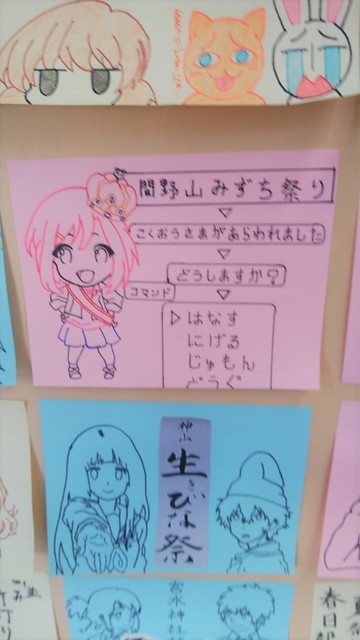 間野山みずち祭り
▽
こくおうさまがあらわれました
▽
どうしますか?
コマンド
▽
▷はなす
にげる
じゅもん
どうぐ
神山
生きびな祭
宮水神社
春日